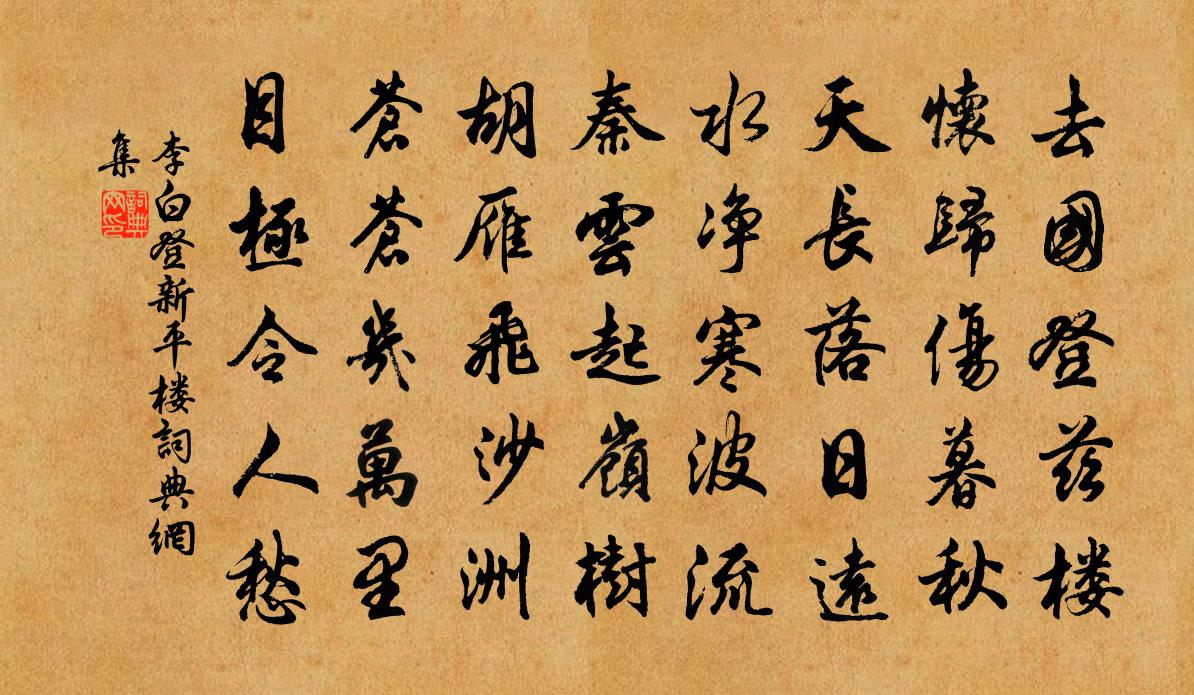 去國登茲楼
懷歸傷暮秋
天長落日遠
水净寒波流
秦雲起嶺樹
胡雁飛沙洲
蒼蒼幾萬里
目極令人愁
李白登新平楼詞典網
集
詞典网印